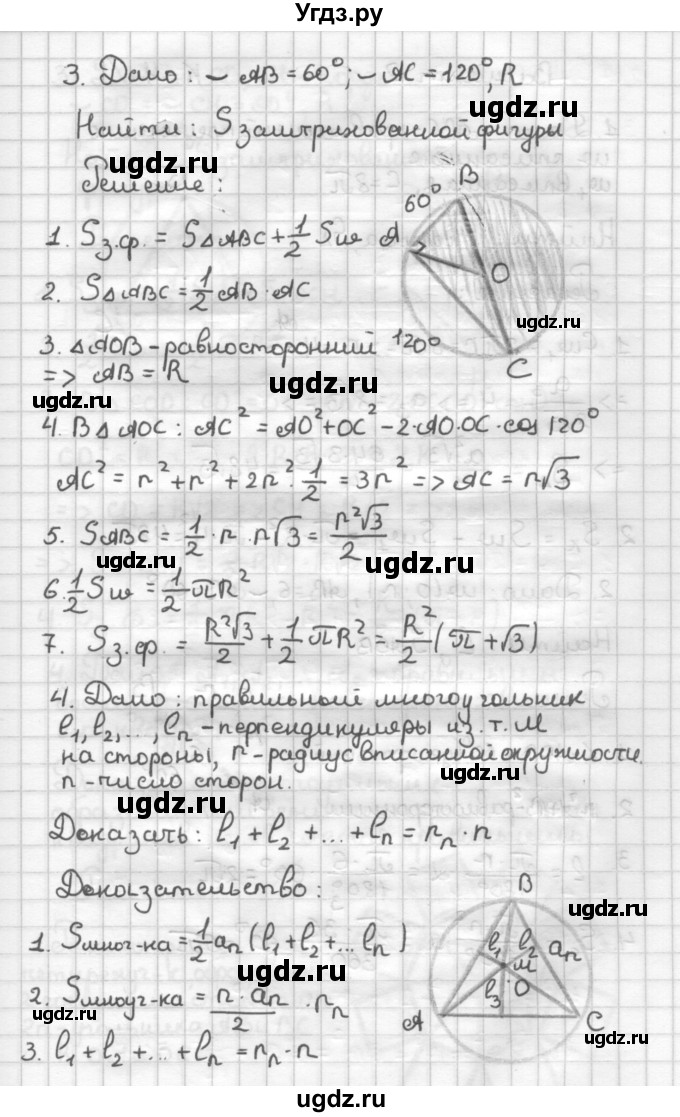 Угдз.ру
3. Дано: ◡ AB = 60°; ◡ AC = 120°, R
Найти: S заштрихованной фигуры
ugdz.ru
ugdz.ru
Решение:
60°
B
1. Sз.ф. = S△ABC + 1/2 Sш
A
O
2. S△ABC = 1/2 AB · AC
ugdz.ru
3. △AOB - равносторонний
120°
=> AB = R
C
ugdz.ru
4. В △ AOC: AC² = AO² + OC² - 2·AO·OC · cos 120°
ugdz.ru
AC² = r² + r² + 2r² · 1/2 = 3r² => AC = r√3
5. SABC = 1/2 · r · r√3 = r²√3/2
ugdz.ru
ugdz.ru
6. 1/2 Sш = 1/2 πR²
7. Sз.ф. = R²√3/2 + 1/2 πR² = R²/2 (π + √3)
ugdz.ru
4. Дано: правильный многоугольник
l₁, l₂, ..., lₙ - перпендикуляры из т. M
на стороны, r - радиус вписанной окружности.
n - число сторон.
ugdz.ru
Доказать: l₁ + l₂ + ... + lₙ = rₙ · n
ugdz.ru
Доказательство:
B
ugdz.ru
1. Sмног-ка = 1/2 aₙ (l₁ + l₂ + ... lₙ)
l₁ l₂ aₙ
ugdz.ru
M
l₃ O
2. Sмноуг-ка = n · aₙ/2 · rₙ
A
C
3. l₁ + l₂ + ... + lₙ = rₙ · n
ugdz.ru
ugdz.ru